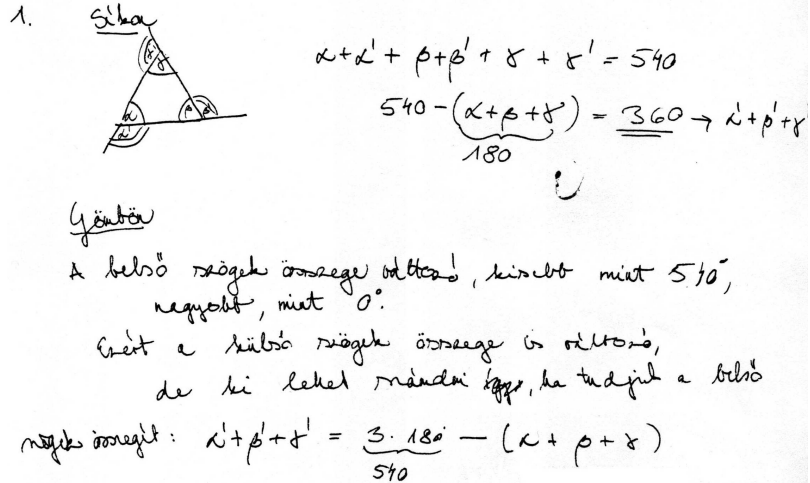 1. Síkon
γ' γ
α α' β β'
α+α' + β+β' + γ + γ' = 540
540-(α+β+γ) = 360 → α'+β'+γ'
180
Gömbön
A belső szögek összege változó, kisebb mint 540°,
nagyobb, mint 0°.
Ezért a külső szögek összege is változó,
de ki lehet számolni, ha tudjuk a belső
szögek összegét: α'+β'+γ' = 3·180 - (α + β + γ)
540